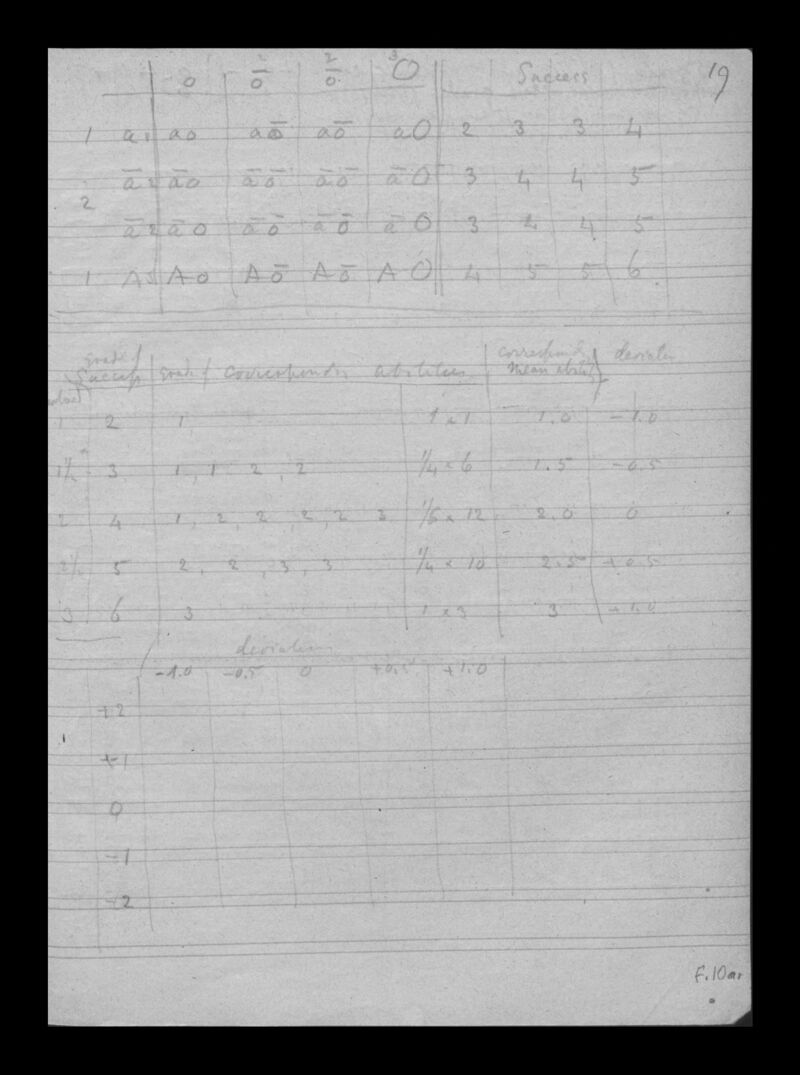 2 2 3
o o̅ o̅ O Success 19
1 a 1 ao ao̅ ao̅ aO 2 3 3 4
a̅ 2 a̅o a̅o̅ a̅o̅ a̅O 3 4 4 5
2
a̅ 2 a̅o a̅o̅ a̅o̅ a̅O 3 4 4 5
1 A 3 Ao Ao̅ Ao̅ AO 4 5 5 6
grade of Success grade of corresponding abilities corresponding mean ability deviation
1 2 1 1 x 1 1.0 -1.0
1½ 3 1, 1 2, 2 ¼ x 6 1.5 -0.5
2 4 1, 2, 2, 2, 2 3 1/6 x 12 2.0 0
2½ 5 2, 2, 3, 3 ¼ x 10 2.5 +0.5
3 6 3 1 x 3 3 +1.0
deviation
-1.0 -0.5 0 +0.5 +1.0
+2
+1
0
-1
-2
F.10ar